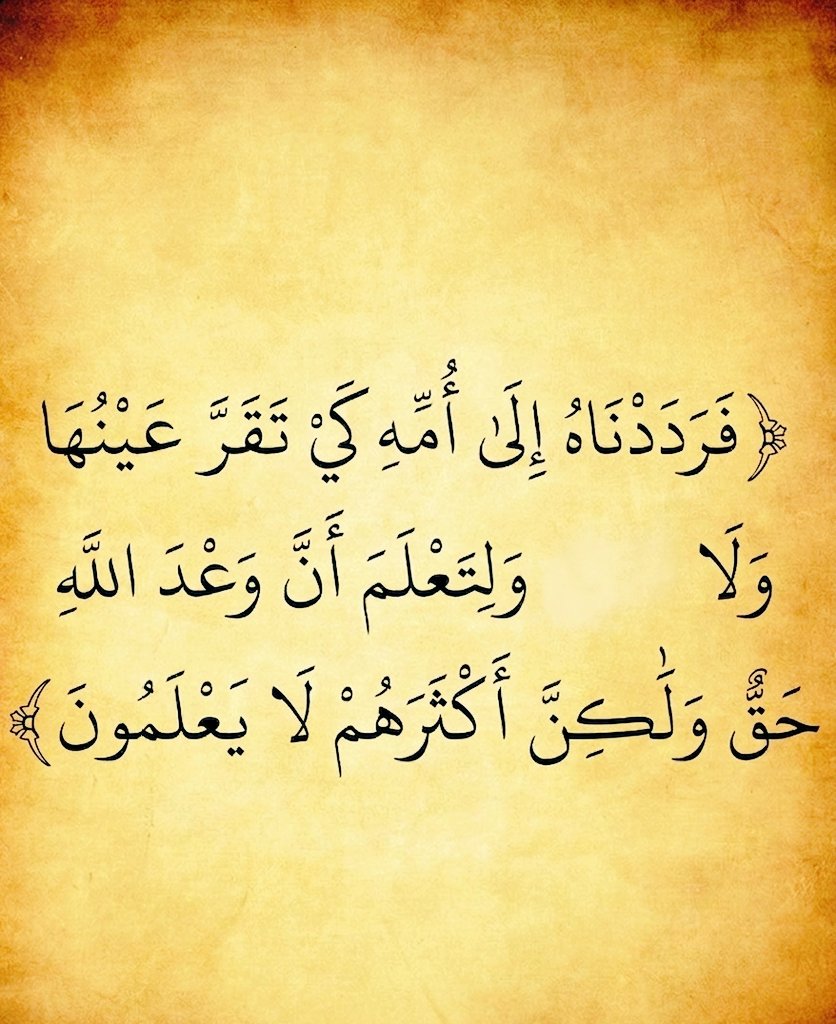 ﴿فَرَدَدْنَاهُ إِلَىٰ أُمِّهِ كَيْ تَقَرَّ عَيْنُهَا
وَلَا وَلِتَعْلَمَ أَنَّ وَعْدَ اللَّهِ
حَقٌّ وَلَٰكِنَّ أَكْثَرَهُمْ لَا يَعْلَمُونَ﴾